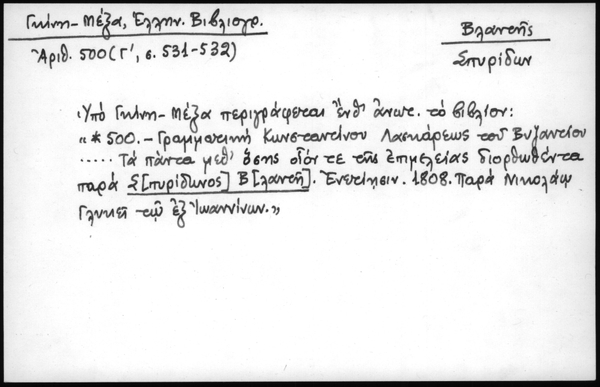 Γκίνη-Μέξα, Ἑλλην. Βιβλιογρ.
Ἀριθ. 500 (Γ', σ. 531-532)
Βλαντῆς
Σπυρίδων
Ὑπὸ Γκίνη-Μέξα περιγράφεται ἔνθ' ἀνωτ. τὸ βιβλίον:
"*500.- Γραμματικὴ Κωνσταντίνου Λασκάρεως τοῦ Βυζαντίου
..... Τὰ πάντα μεθ' ὅσης οἷόν τε τῆς ἐπιμελείας διορθωθέντα
παρὰ Σ[πυρίδωνος] Β[λαντῆ]. Ἐνετίησιν. 1808. Παρὰ Νικολάῳ
Γλυκεῖ τῷ ἐξ Ἰωαννίνων."